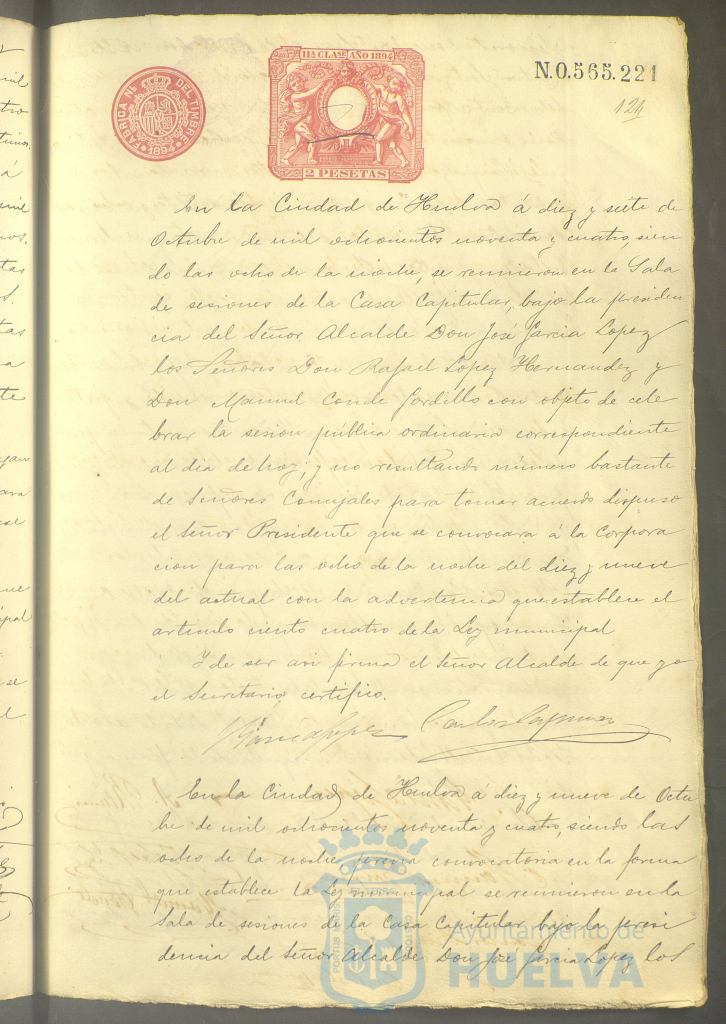 FABRICA Nal. DEL TIMBRE
1894
11ª CLASE AÑO 1894
2 PESETAS
N.0.565.221
124
En la Ciudad de Huelva á diez y siete de
Octubre de mil ochocientos noventa y cuatro, sien
do las ocho de la noche, se reunieron en la Sala
de sesiones de la Casa Capitular, bajo la presiden
cia del Señor Alcalde Don José Garcia Lopez
los Señores Don Rafael Lopez Hernandez y
Don Manuel Conde Gordillo con objeto de cele
brar la sesion pública ordinaria correspondiente
al dia de hoy; y no resultando número bastante
de Señores Concejales para tomar acuerdo dispuso
el Señor Presidente que se convocara á la Corpora
cion para las ocho de la noche del diez y nueve
del actual con la advertencia que establece el
articulo ciento cuatro de la Ley municipal
Y de ser asi firma el Señor Alcalde de que yo
el Secretario certifico.
J Garcia Lopez Carlos
En la Ciudad de Huelva á diez y nueve de Octu
bre de mil ochocientos noventa y cuatro, siendo las
ocho de la noche previa convocatoria en la forma
que establece la Ley municipal se reunieron en la
Sala de sesiones de la Casa Capitular bajo la presi
dencia del Señor Alcalde Don José Garcia Lopez los
Ayuntamiento de
HUELVA